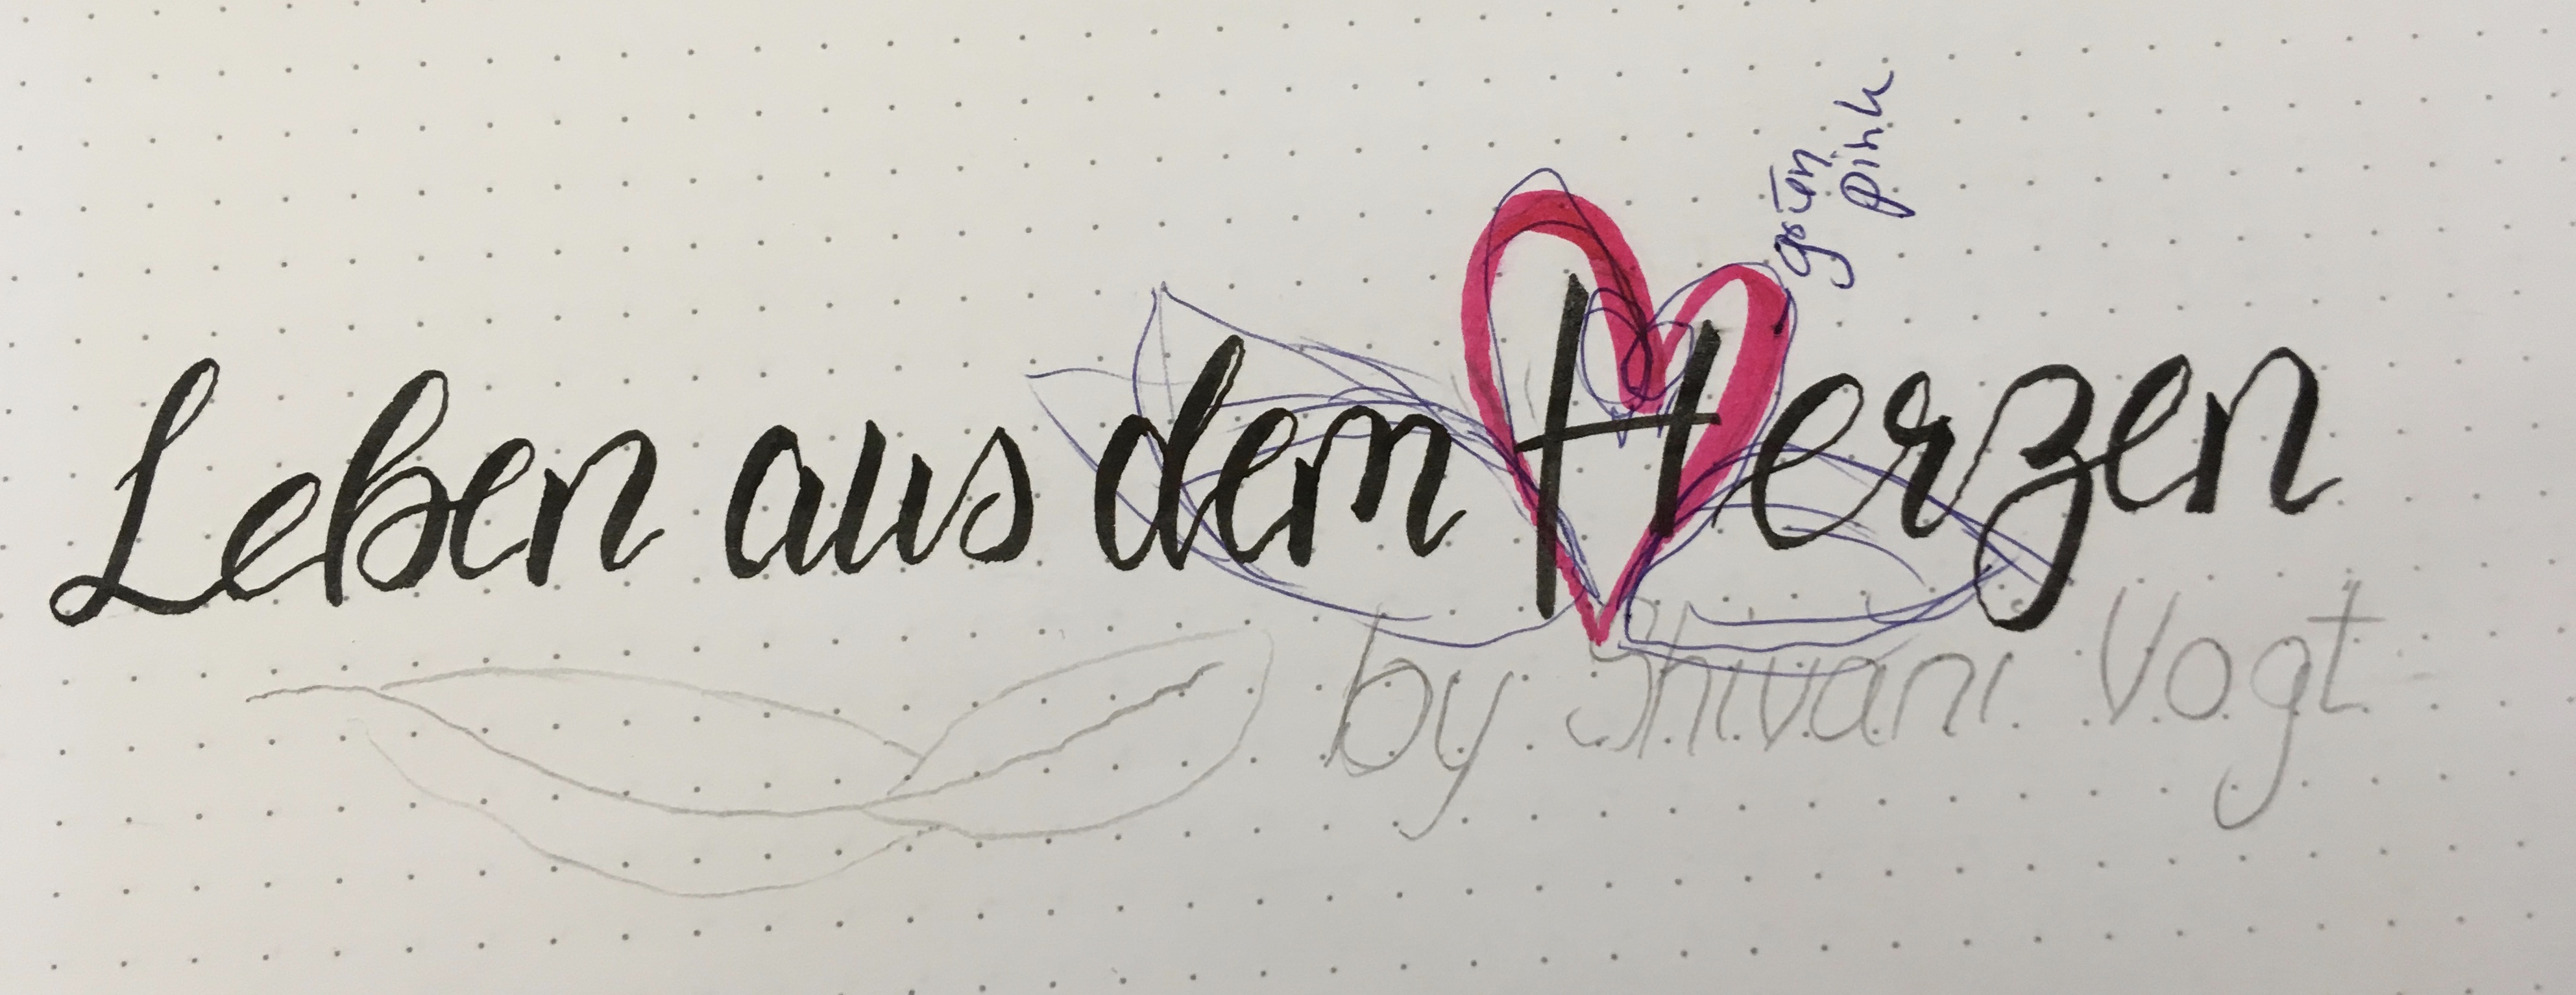 grün
pink
Leben aus dem Herzen
by Shivani Vogt